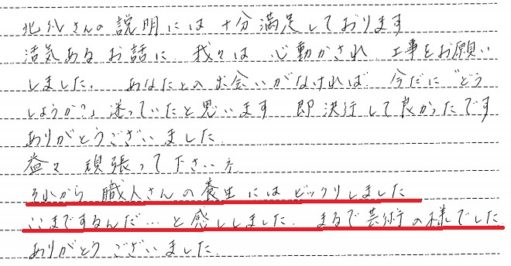 北川さんの説明には十分満足しております
活気あるお話に 我々は 心動かされ 工事をお願い
しました。 あなたとの出会いがなければ 今だに"どう
しようか?"迷っていたと思います 即決行して良かったです
ありがとうございました
益々 頑張って下さい
それから 職人さんの養生には ビックリしました
ここまでするんだ… と感心しました。まるで芸術の様でした
ありがとうございました。